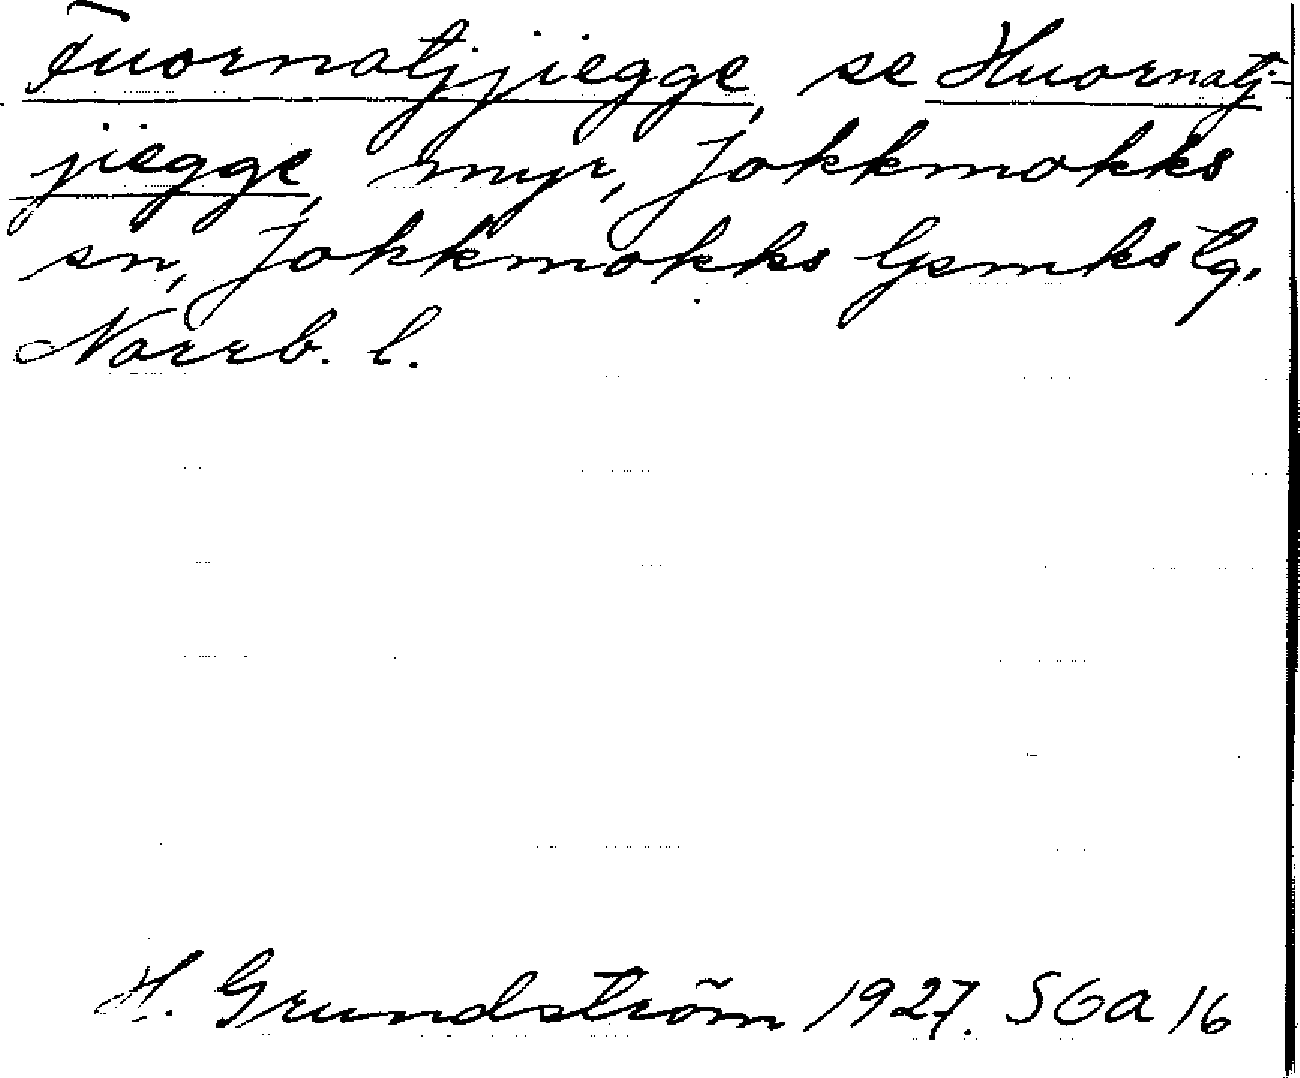 Fuornatjjiegge, se Huornatj-
jiegge, myr, Jokkmokks
sn, Jokkmokks lpsmkslg.
Norrb. l.
H. Grundström 1927. SGa 16